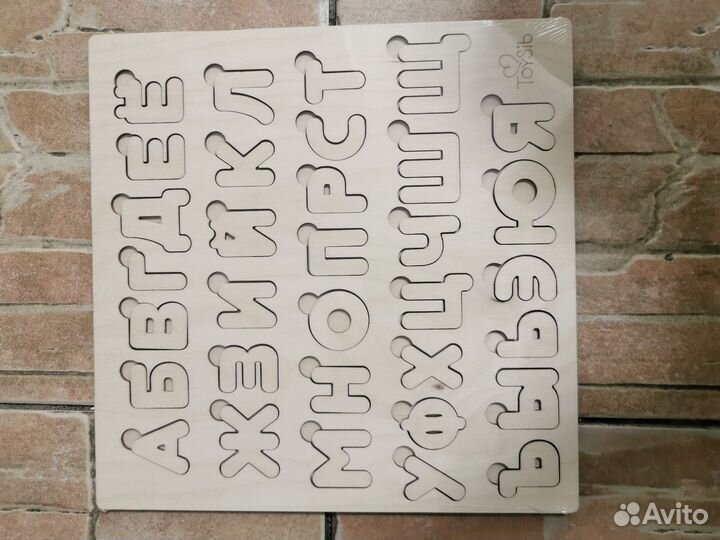 АБВГДЕЁ
ЖЗИЙКЛ
МНОПРСТ
УФХЦЧШЩ
ЪЫЬЭЮЯ
ToySib
Avito